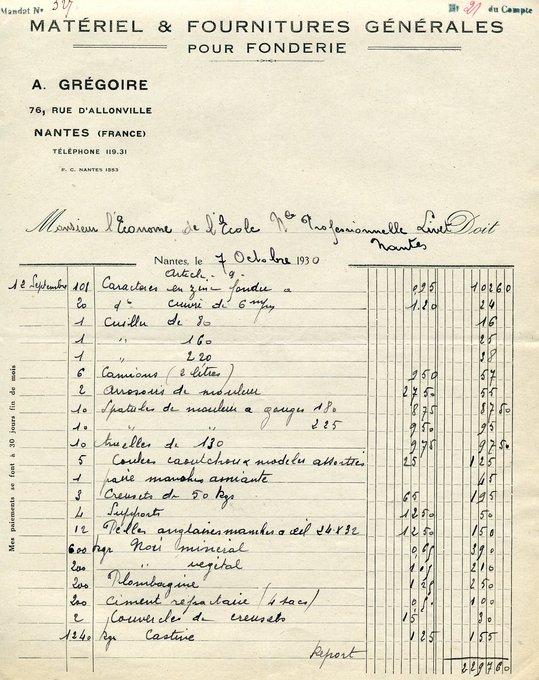 Mandat No 327
No 21 du Compte
MATÉRIEL & FOURNITURES GÉNÉRALES
POUR FONDERIE
A. GRÉGOIRE
76, RUE D'ALLONVILLE
NANTES (FRANCE)
TÉLÉPHONE 119.31
P. C. NANTES 1553
Monsieur l'Econome de l'Ecole Nle Professionnelle Livet Doit
Nantes
Nantes, le 7 Octobre 1930
Article 9.
12 Septembre 108 Caracteres en zinc fondu a 0,95 102 60
20 do cuivre de 6 m/m 1.20 24
1 Cuiller de 80 16
1 " 160 25
1 " 220 38
6 Camions (2 litres) 9 50 57
2 Arrosoirs de mouleur 27 50 55
10 Spatules de mouleur a gouges 180 8 75 87 50
10 " " 225 9 50 95
10 truelles de 130 9 75 97 50
5 Couleurs caoutchoux modeles assorties 25 125
1 paire manches amiante 45
3 Creusets de 50 kgs 65 195
4 Supports 12 50 50
12 Pelles anglaises manches a œil 24 x 32 12 50 150
600 kgr Noir mineral 0,65 390
200 " végétal 1.05 210
200 Plombagine 1,25 250
200 ciment refractaire (4 sacs) 0,5 100
2 Couvercles de creusets 15 30
1240 kgr Castine 125 155
Report 2297 60
Mes paiements se font à 30 jours fin de mois